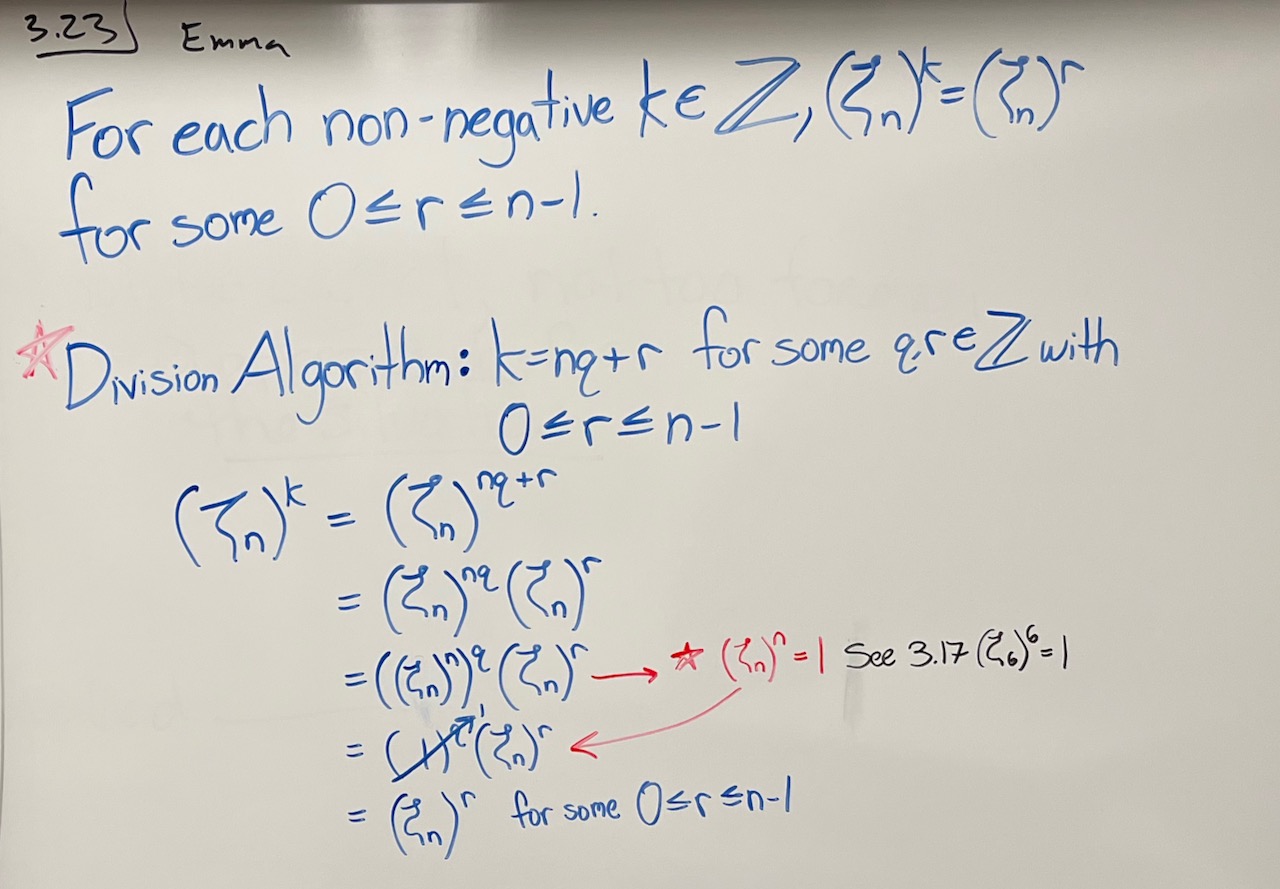 3.23 Emma
For each non-negative k ∈ ℤ, (ζₙ)ᵏ = (ζₙ)ʳ
for some 0 ≤ r ≤ n-1.
☆ Division Algorithm: k=nq+r for some q,r ∈ ℤ with
0 ≤ r ≤ n-1
(ζₙ)^k = (ζₙ)^(nq+r)
= (ζₙ)^(nq) (ζₙ)^r
= ((ζₙ)^n)^q (ζₙ)^r → ☆ (ζₙ)^n = 1 See 3.17 (ζ₆)^6 = 1
= (1)^q 1 (ζₙ)^r ←
= (ζₙ)^r for some 0 ≤ r ≤ n-1